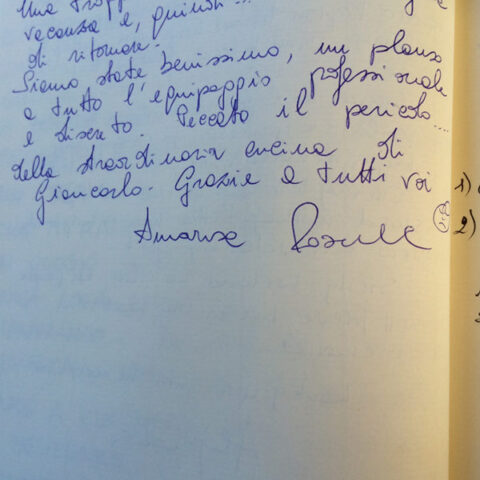 Una tropp
vacanza e, quindi...
di ritornare.
Siamo state benissimo, un plauso
a tutto l'equipaggio professionale
e discreto. Peccato il pericolo...
della straordinaria cucina di
Giancarlo. Grazie a tutti voi
1)
2)